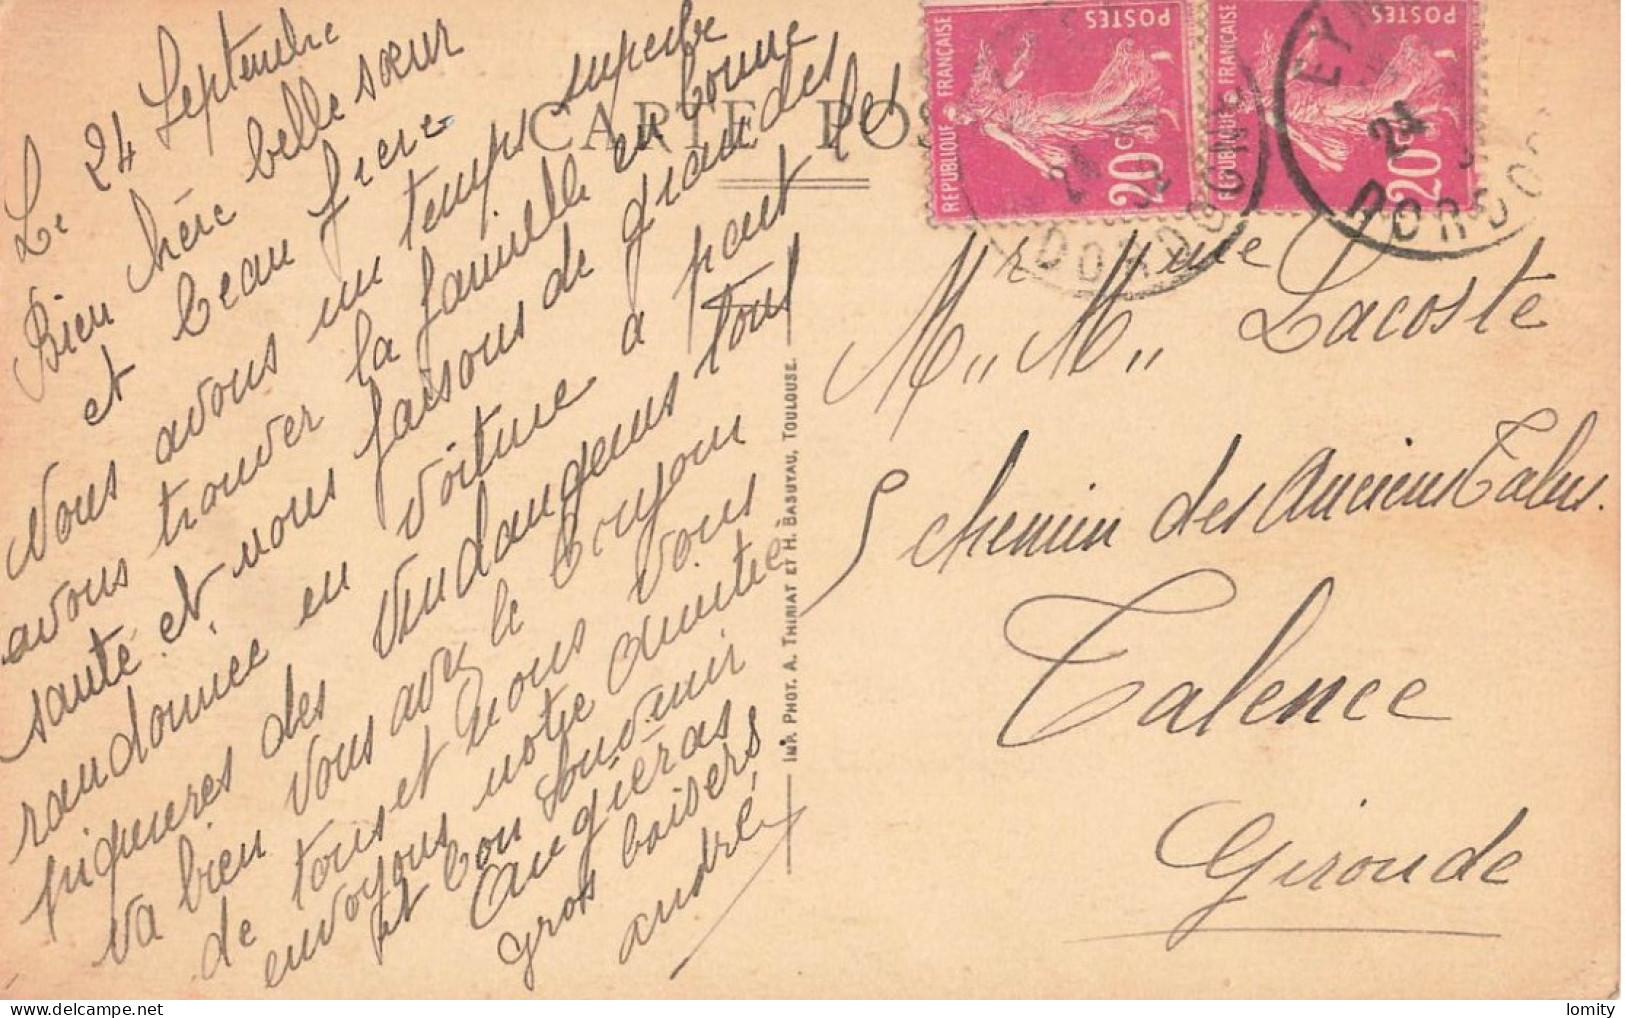 Le 24 Septembre
Bien chère belle sœur
et beau frere
Nous avons un temps superbe
avons trouver la famille en bonne
santé et nous faisons de grandes
randonnée en voiture a part les
piqures des vendangeurs tout
va bien vous avez le bonjour
de tous et Nous vous
envoyons notre amitié
et bon souvenir
Augiéras
gros baisers
andré
CARTE POS
IMP. PHOT. A. THIRIAT ET H. BASUYAU, TOULOUSE.
POSTES
REPUBLIQUE FRANÇAISE
20 C
24
DORDOGNE
POSTES
REPUBLIQUE FRANÇAISE
20 C
EYM
24
DORDOG
Mr Mme
M,, M,, Lacoste
5 chemin des Anciens Talus.
Talence
Gironde
lomity